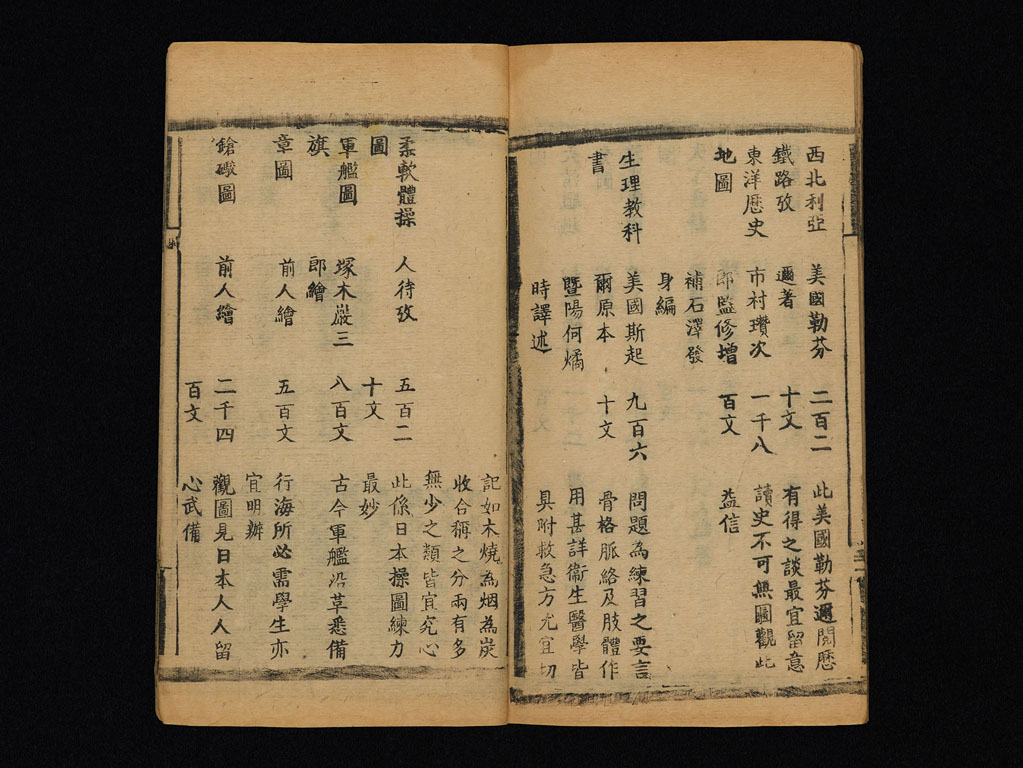 西北利亞 美國勒芬 二百二 此美國勒芬邇閱歷
鐵路攷 邇著 十文 有得之談最宜留意
東洋歷史 市村瓚次 一千八 讀史不可無圖觀此
地圖 郎監修增 百文 益信
補石澤發
身編
生理教科 美國斯起 九百六 問題為練習之要言
書 爾原本 十文 骨格脈絡及肢體作
暨陽何燏 用甚詳衞生醫學皆
時譯述 具附救急方尤宜切
記如木燒為烟為炭
收合稱之分兩有多
無少之類皆宜究心
柔軟體操 人待攷 五百二 此係日本操圖練力
圖 十文 最妙
軍艦圖 塚木巖三 八百文 古今軍艦沿革悉備
旗 郎繪
章圖 前人繪 五百文 行海所必需學生亦
宜明辦
鎗礮圖 前人繪 二千四 觀圖見日本人人留
百文 心武備